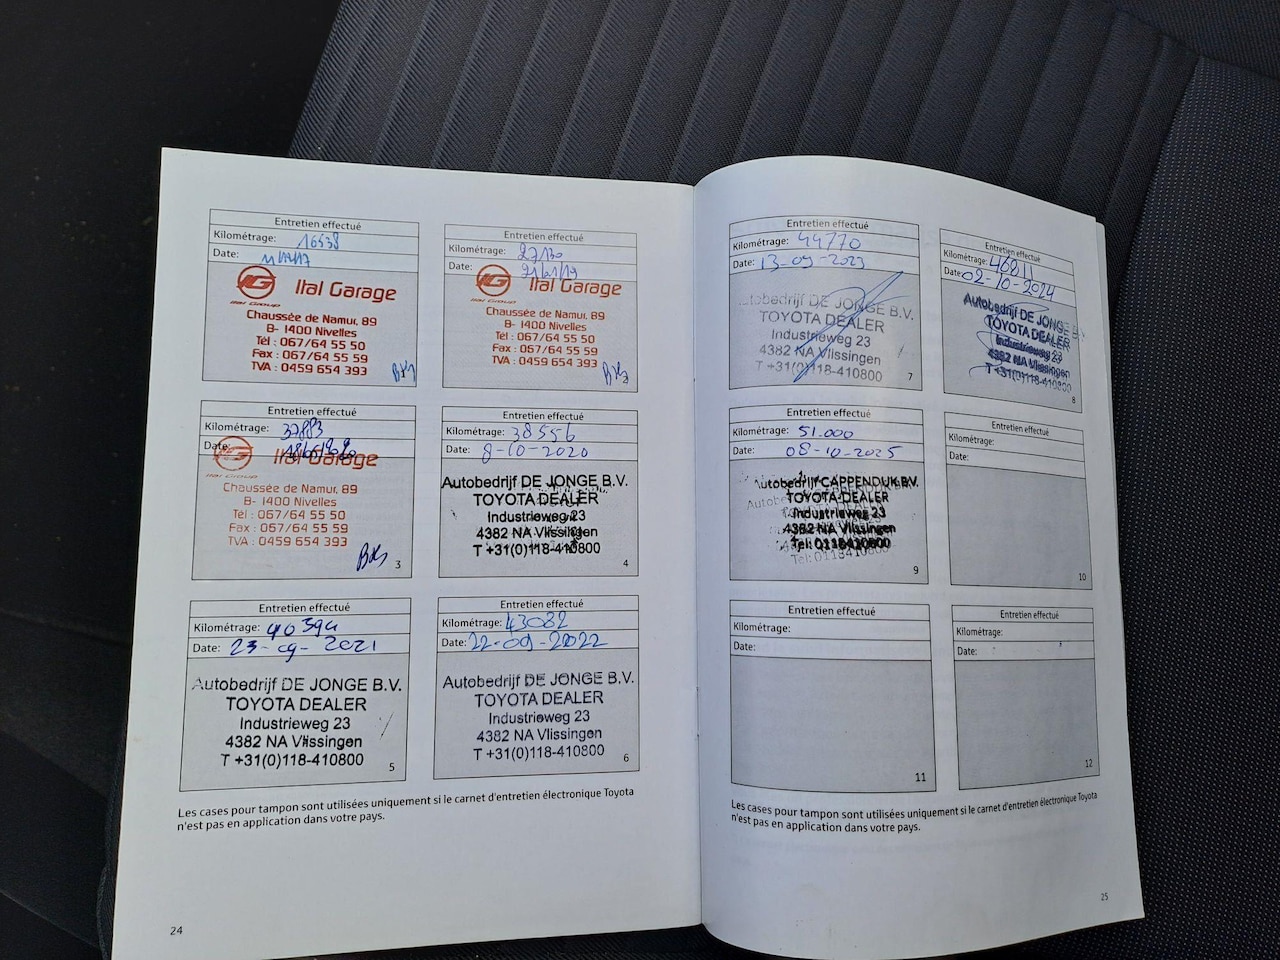 Entretien effectué
Kilométrage: 16538
Date:
IG Ital Garage
Ital Group
Chaussée de Namur, 89
B- 1400 Nivelles
Tél : 067/64 55 50
Fax : 067/64 55 59
TVA : 0459 654 393
Entretien effectué
Kilométrage: 27130
Date: 21/01/19
IG Ital Garage
Ital Group
Chaussée de Namur, 89
B- 1400 Nivelles
Tél : 067/64 55 50
Fax : 067/64 55 59
TVA : 0459 654 393
2
Entretien effectué
Kilométrage: 37883
Date:
Ital Garage
Ital Group
Chaussée de Namur, 89
B- 1400 Nivelles
Tél : 067/64 55 50
Fax : 067/64 55 59
TVA : 0459 654 393
3
Entretien effectué
Kilométrage: 38556
Date: 8-10-2020
Autobedrijf DE JONGE B.V.
TOYOTA DEALER
Industrieweg 23
4382 NA Vlissingen
T +31(0)118-410800
4
Entretien effectué
Kilométrage: 40394
Date: 23-09-2021
Autobedrijf DE JONGE B.V.
TOYOTA DEALER
Industrieweg 23
4382 NA Vlissingen
T +31(0)118-410800
5
Entretien effectué
Kilométrage: 43082
Date: 22-09-2022
Autobedrijf DE JONGE B.V.
TOYOTA DEALER
Industrieweg 23
4382 NA Vlissingen
T +31(0)118-410800
6
Les cases pour tampon sont utilisées uniquement si le carnet d'entretien électronique Toyota
n'est pas en application dans votre pays.
24
Entretien effectué
Kilométrage: 44770
Date: 13-09-2023
Autobedrijf DE JONGE B.V.
TOYOTA DEALER
Industrieweg 23
4382 NA Vlissingen
T +31(0)118-410800
7
Entretien effectué
Kilométrage: 46811
Date: 02-10-2024
Autobedrijf DE JONGE B.V.
TOYOTA DEALER
Industrieweg 23
4382 NA Vlissingen
T +31(0)118-410800
8
Entretien effectué
Kilométrage: 51.000
Date: 08-10-2025
Autobedrijf CAPPENDIJK B.V.
TOYOTA-DEALER
Industrieweg 23
4382 NA Vlissingen
Tel: 0118410800
9
Entretien effectué
Kilométrage:
Date:
10
Entretien effectué
Kilométrage:
Date:
11
Entretien effectué
Kilométrage:
Date:
12
Les cases pour tampon sont utilisées uniquement si le carnet d'entretien électronique Toyota
n'est pas en application dans votre pays.
25